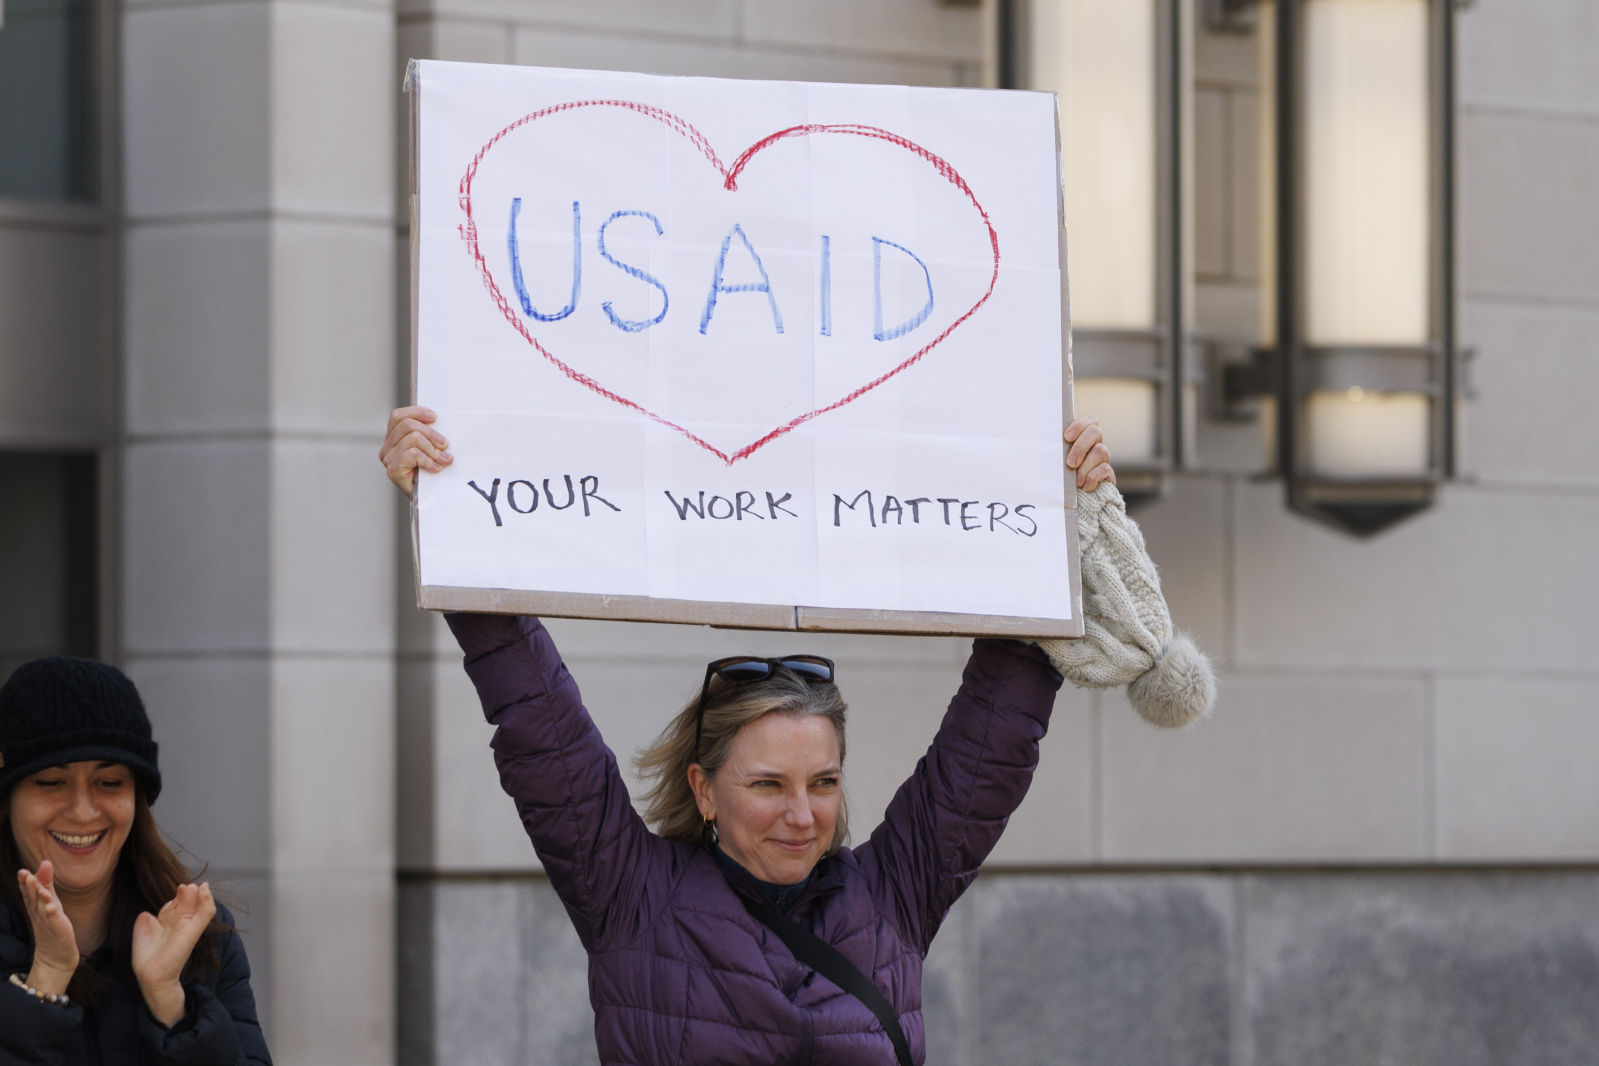 USAID
YOUR WORK MATTERS